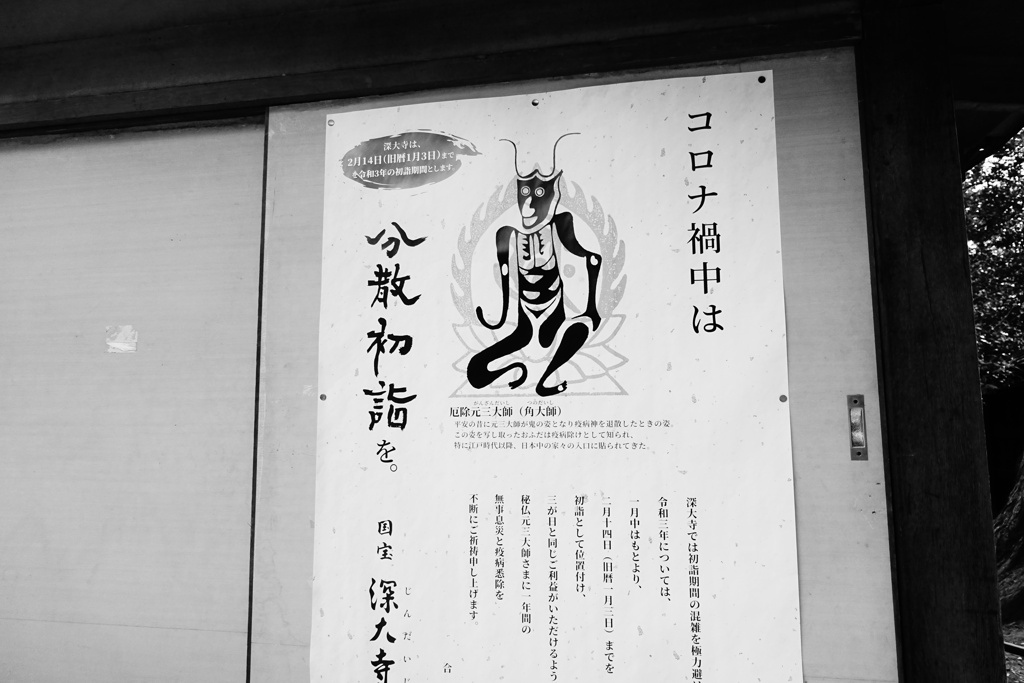 コロナ禍中は
深大寺は、
2月14日(旧暦1月3日)まで
令和3年の初詣期間とします。
分散初詣を。
厄除元三大師(角大師)
がんざんだいし つのだいし
平安の昔に元三大師が鬼の姿となり疫病神を退散したときの姿。
この姿を写し取ったおふだは疫病除けとして知られ、
特に江戸時代以降、日本中の家々の入口に貼られてきた。
深大寺では初詣期間の混雑を極力避
令和三年については、
一月中はもとより、
二月十四日(旧暦一月三日)までを
初詣として位置付け、
三が日と同じご利益がいただけるよう
秘仏元三大師さまに一年間の
無事息災と疫病悉除を
不断にご祈祷申し上げます。
合
国宝 深大寺
じんだいじ